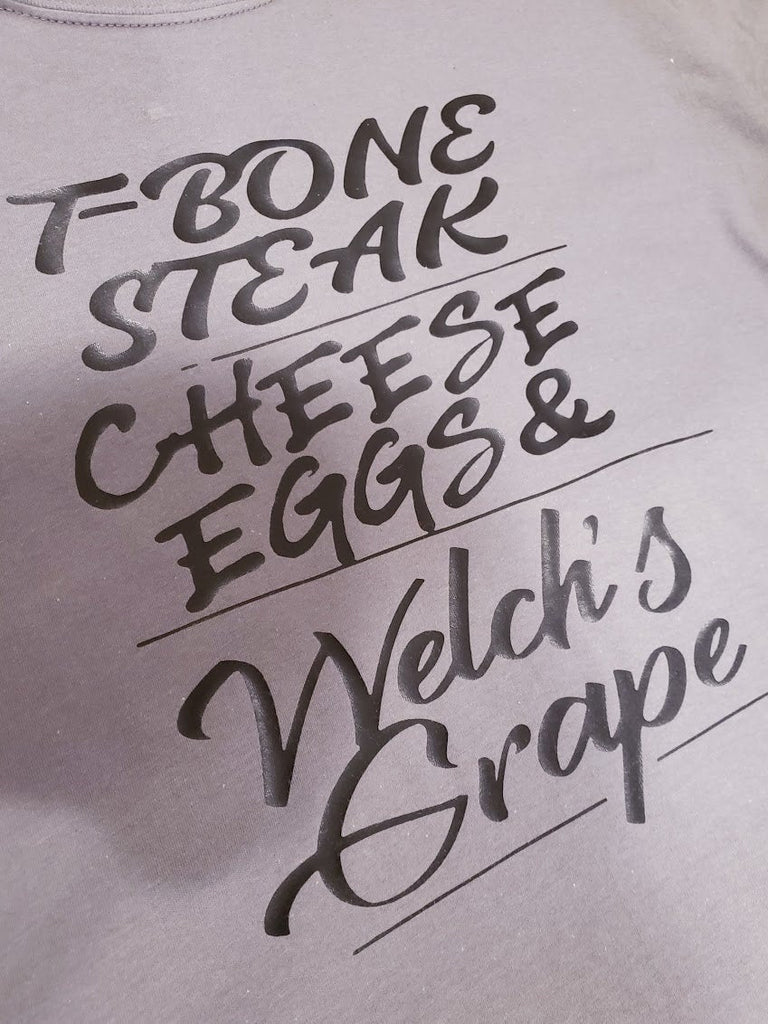 T-BONE
STEAK
CHEESE
EGGS &
Welch's
Grape